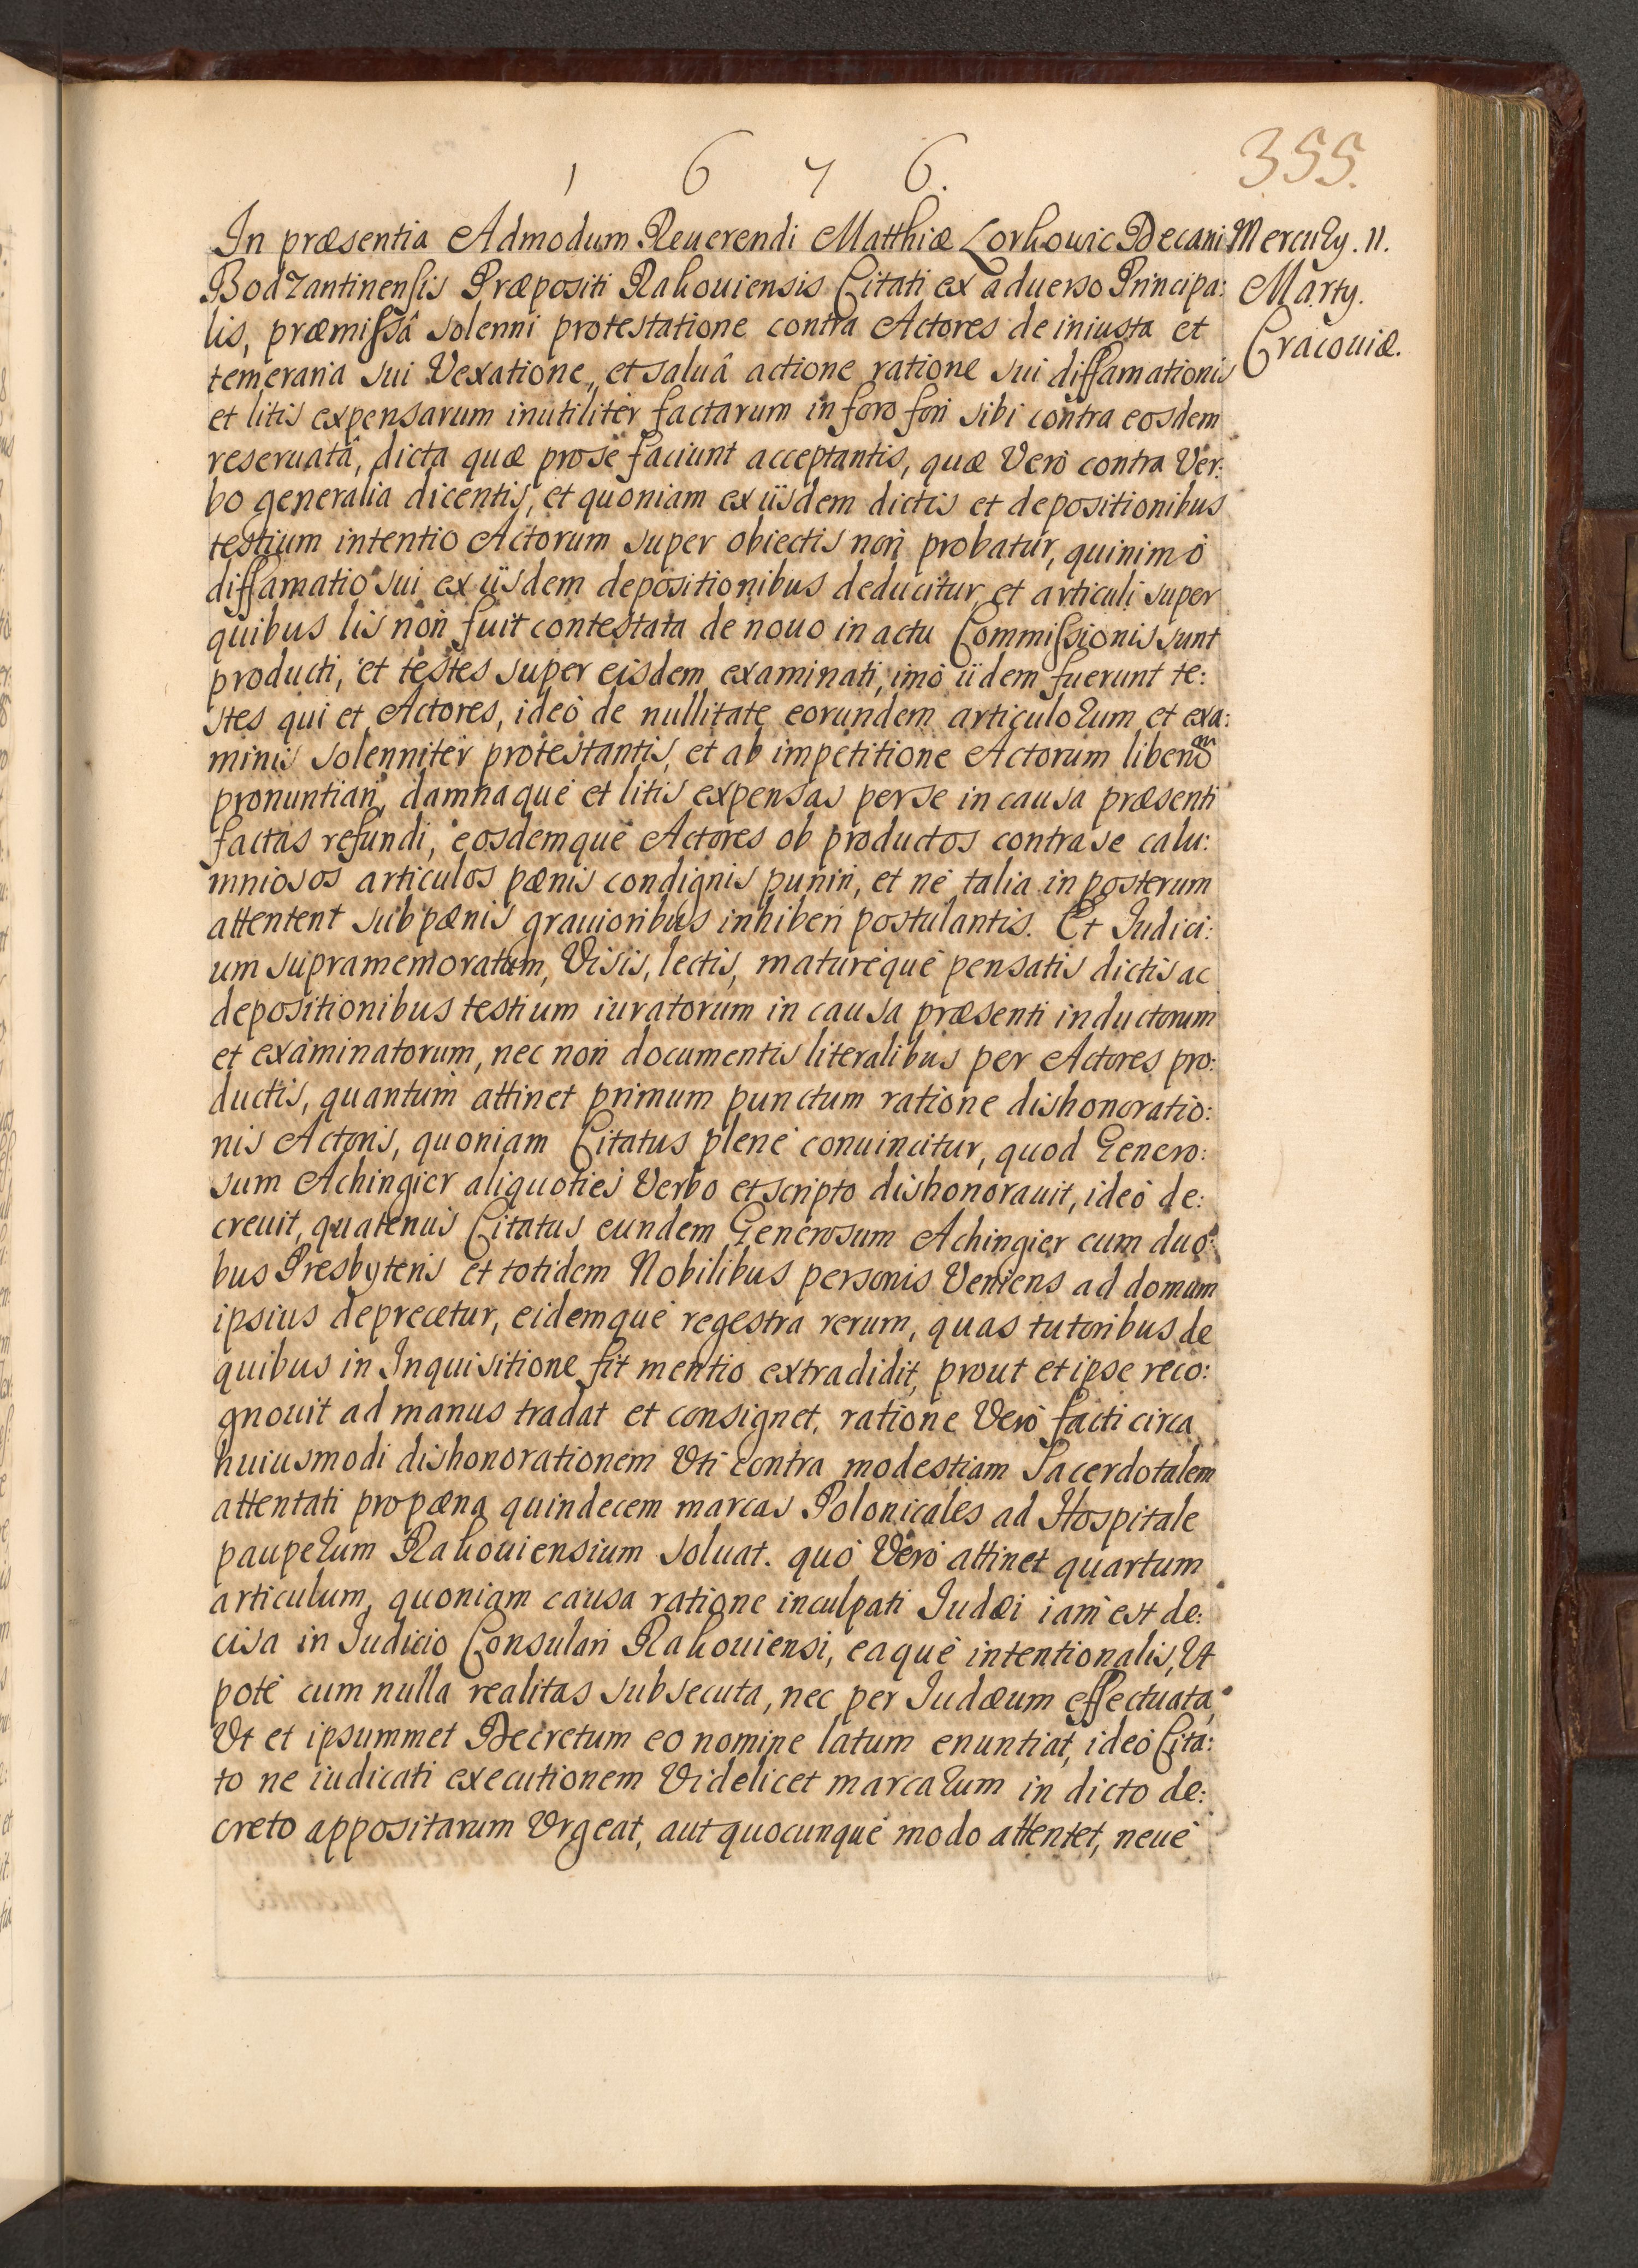 1 6 7 6.
355.
In præsentia Admodum Reuerendi Matthiæ Lorkowic Decani
Bodzantinensis Præpositi Rakouiensis Citati ex aduerso Principa:
lis, præmissâ solenni protestatione contra Actores de iniusta et
temeraria sui Vexatione, et saluâ actione ratione sui diffamationis
et litis expensarum inutiliter factarum in foro fori sibi contra eosdem
reseruatâ, dicta quæ pro se faciunt acceptantis, quæ Verò contra Ver:
bo generalia dicentis, et quoniam ex iisdem dictis et depositionibus
testium intentio Actorum super obiectis non probatur, quinimò
diffamatio sui ex iisdem depositionibus deducitur, et articuli super
quibus lis non fuit contestata de nouo in actu Commissionis sunt
producti, et testes super eisdem examinati, imò iidem fuerunt te:
stes qui et Actores, ideò de nullitate eorundem articulorum et exa:
minis solenniter protestantis, et ab impetitione Actorum liberũ
pronuntiari, damnaque et litis expensas per se in causa præsenti
factas refundi, eosdemque Actores ob productos contra se calu:
mniosos articulos pænis condignis puniri, et ne talia in posterum
attentent sub pænis grauioribus inhiberi postulantis. Et Iudici:
um supramemoratum, Visis, lectis, maturèque pensatis dictis ac
depositionibus testium iuratorum in causa præsenti inductorum
et examinatorum, nec non documentis literalibus per Actores pro:
ductis, quantum attinet primum punctum ratione dishonoratio:
nis Actoris, quoniam Citatus plenè conuincitur, quod Genero:
sum Achingier aliquoties Verbo et scripto dishonorauit, ideò de:
creuit, quatenus Citatus eundem Generosum Achingier cum duo:
bus Presbyteris et totidem Nobilibus personis Veniens ad domum
ipsius deprecetur, eidemque regestra rerum, quas tutoribus de
quibus in Inquisitione fit mentio extradidit, prout et ipse reco:
gnouit ad manus tradat et consignet, ratione Verò facti circa
huiusmodi dishonorationem Vti contra modestiam Sacerdotalem
attentati pro pæna quindecem marcas Polonicales ad Hospitale
pauperum Rakouiensium soluat. quò Verò attinet quartum
articulum, quoniam causa ratione inculpati Iudæi iam est de:
cisa in Iudicio Consulari Rakouiensi, eaque intentionalis, Vt
pote cum nulla realitas subsecuta, nec per Iudæum effectuata,
Vt et ipsummet Decretum eo nomine latum enuntiat, ideò Cita:
to ne iudicati executionem Videlicet marcarum in dicto de:
creto appositarum Vrgeat, aut quocunque modo attentet, neue
Mercury. 11.
Marty.
Cracouiæ.